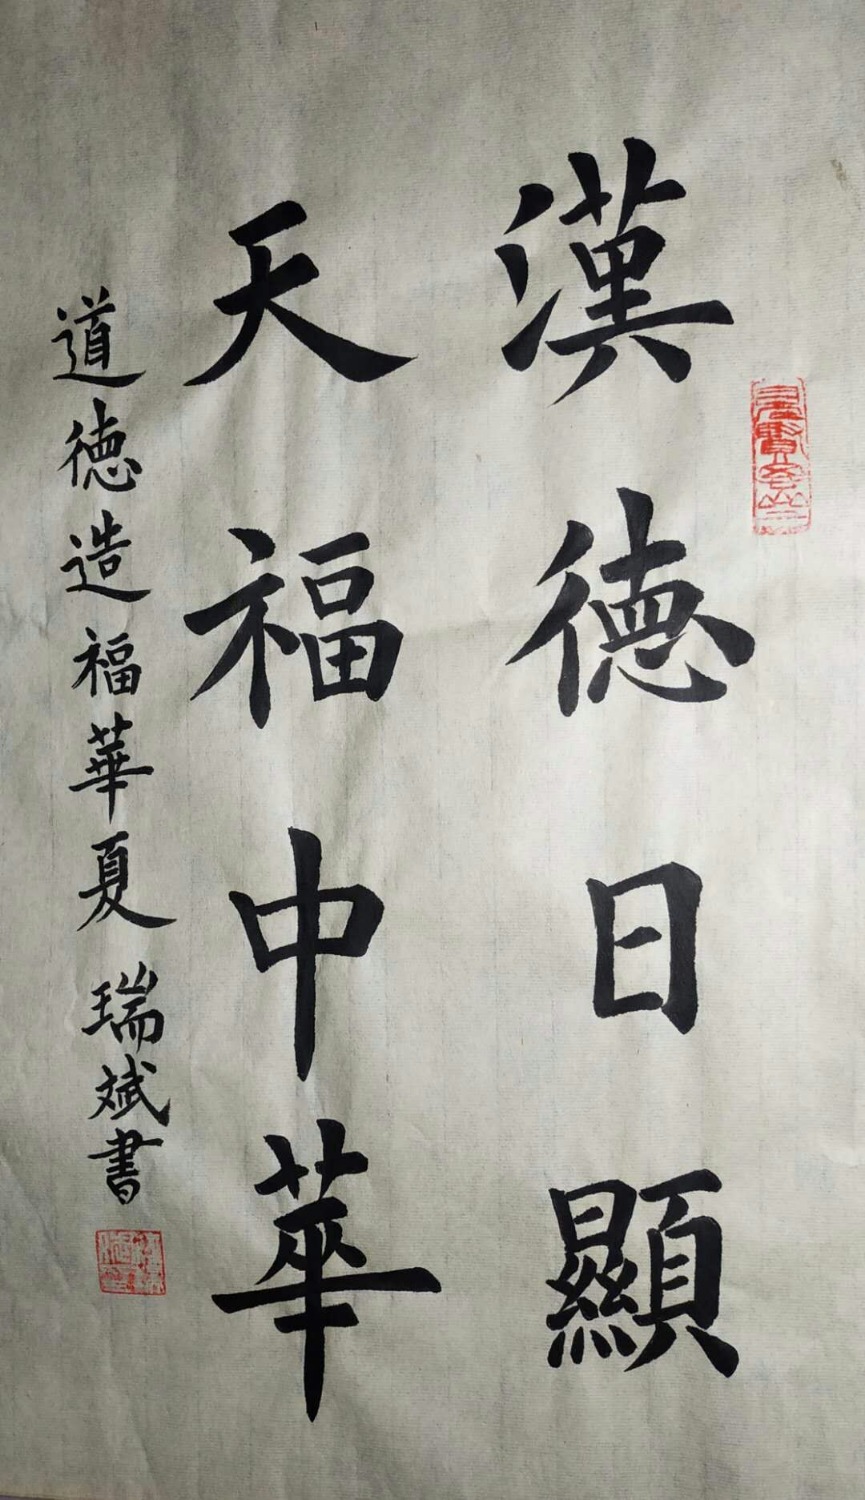 漢德日顯
天福中華
道德造福華夏 瑞斌書